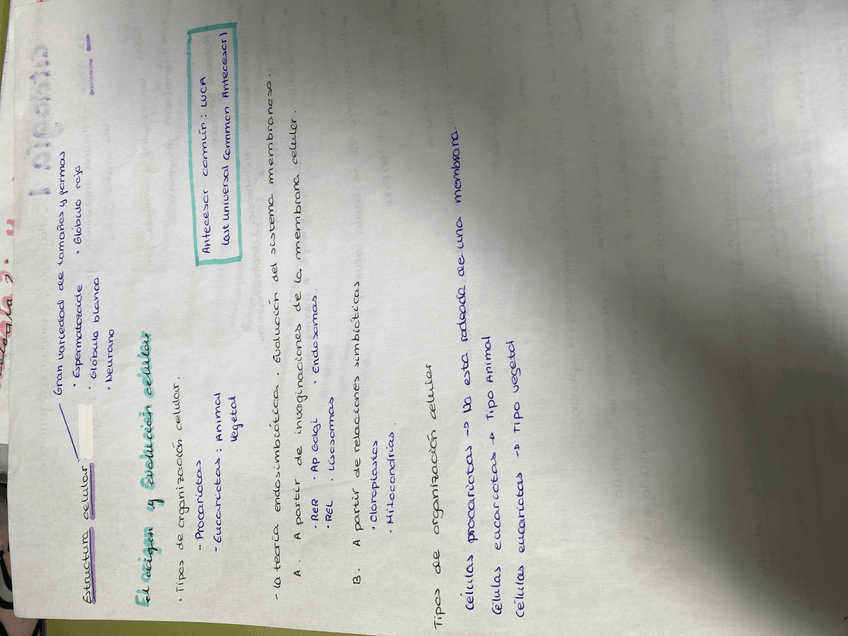 Estructura celular
Gran variedad de tamaños y formas
· Espermatozoide · Glóbulo rojo
· Glóbulo blanco
· Neurona
El origen y Evolución celular
· Tipos de organización celular.
- Procariotas
- Eucariotas : Animal
Vegetal
Antecesor común : LUCA
(Last Universal Common Antecesor)
- La teoría endosimbiótica . Evolución del sistema membranoso.
A. A partir de invaginaciones de la membrana celular.
· RER · Ap Golgi · Endosomas
· REL · Lisosomas
B. A partir de relaciones simbióticas
· Cloroplastos
· Mitocondrias.
Tipos de organización celular
Células procariotas → No esta rodeada de una membrana.
Células eucariotas → Tipo Animal
Células eucariotas → Tipo vegetal